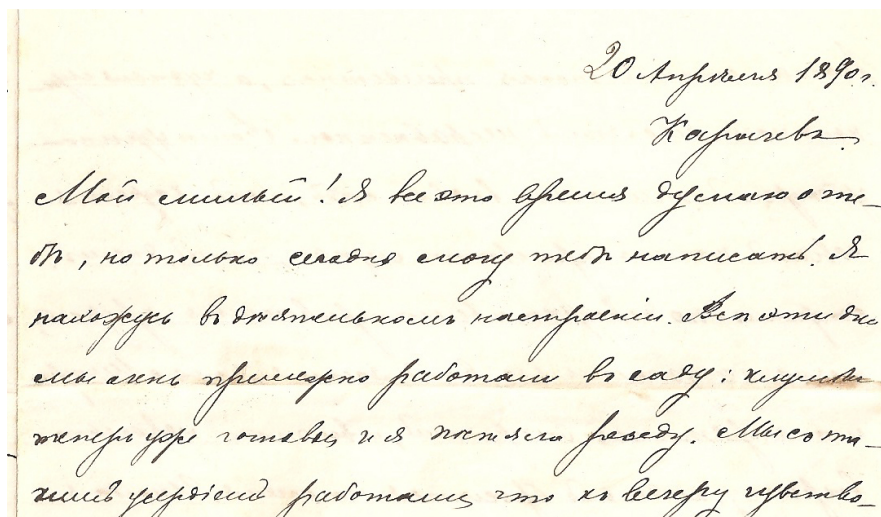 20 Апрѣля 1890 г.
Карачевъ.
Мой милый! Я все это время думаю о те-
бѣ, но только сегодня смогу тебѣ написать. Я
нахожусь въ дѣятельномъ настроеніи. Всѣ эти дни
мы очень прилежно работали въ саду: клумбы
теперь уже готовы и я посѣяла резеду. Мы съ та-
кимъ усердіемъ работали, что къ вечеру чувство-